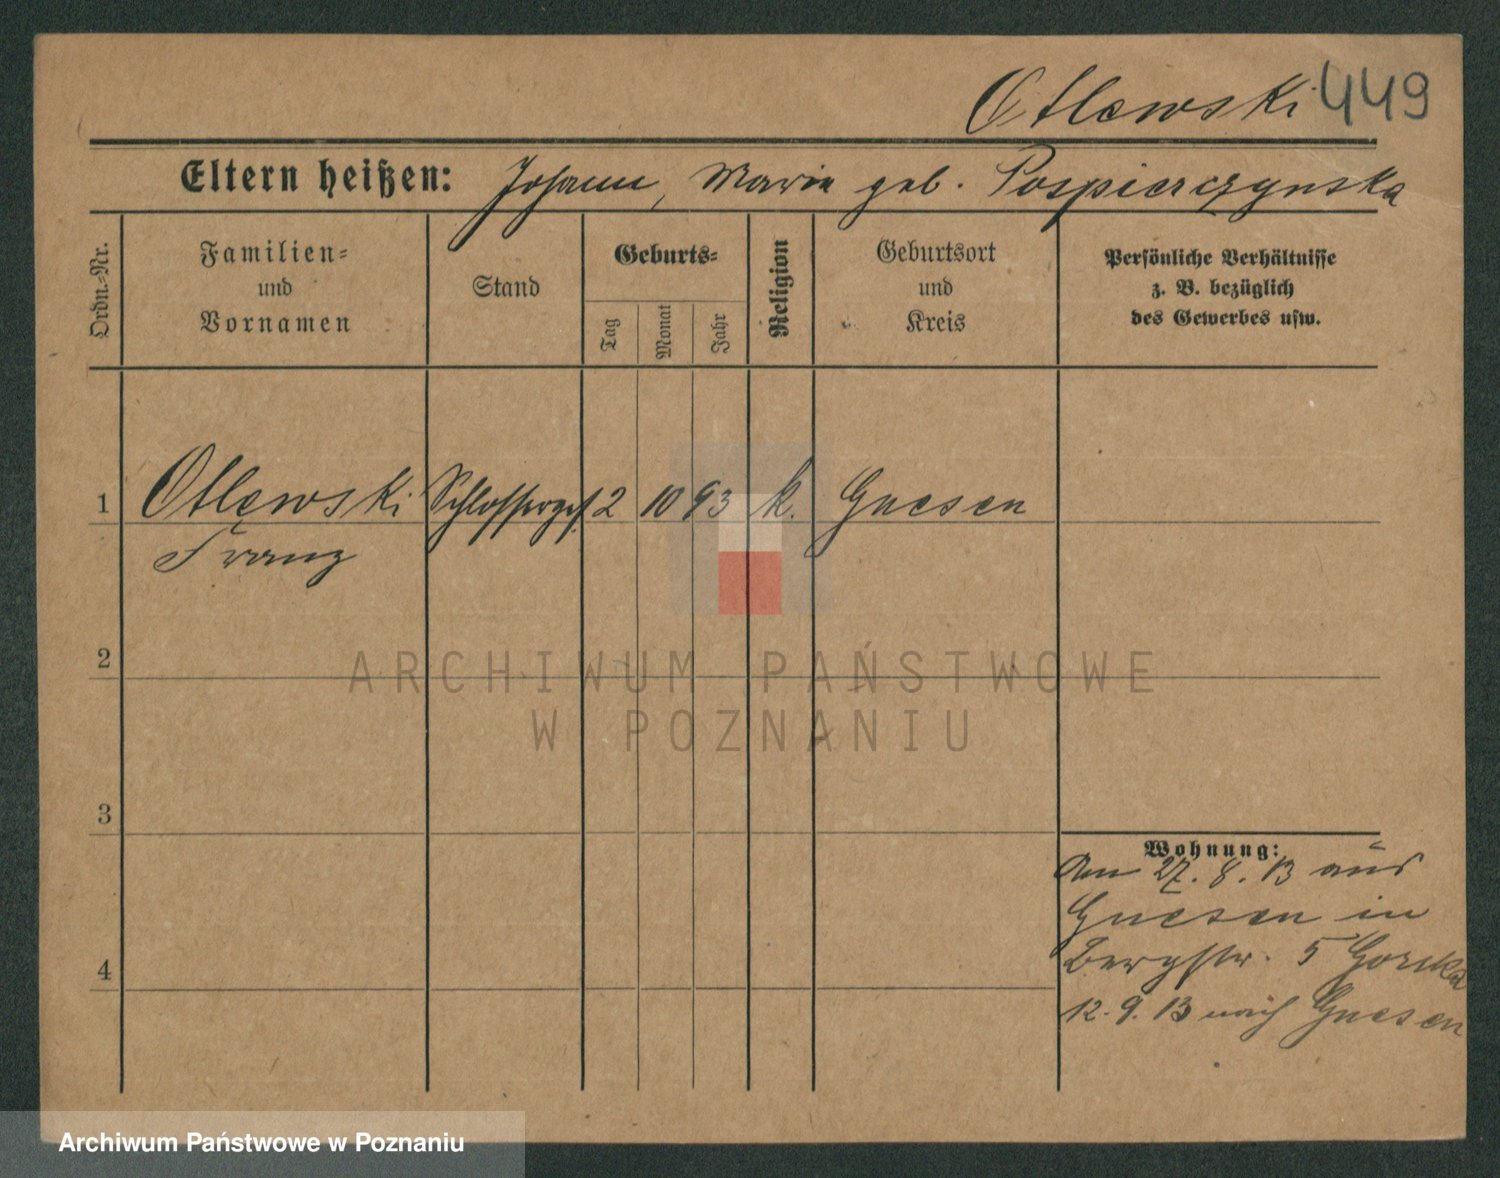 Otlewski 449
Eltern heißen: Johann, Maria geb. Pospierczynska
Ordn.-Nr.
Familien-
und
Vornamen
Stand
Geburts-
Tag
Monat
Jahr
Religion
Geburtsort
und
Kreis
Persönliche Verhältnisse
z. B. bezüglich
des Gewerbes usw.
1 Otlewski Schlosserges. 2 10 93 k. Gnesen
Franz
2
3
4
Wohnung:
Am 27. 8. 13 aus
Gnesen in
Bergstr. 5
12. 9. 13 nach Gnesen
ARCHIWUM PAŃSTWOWE
W POZNANIU
Archiwum Państwowe w Poznaniu